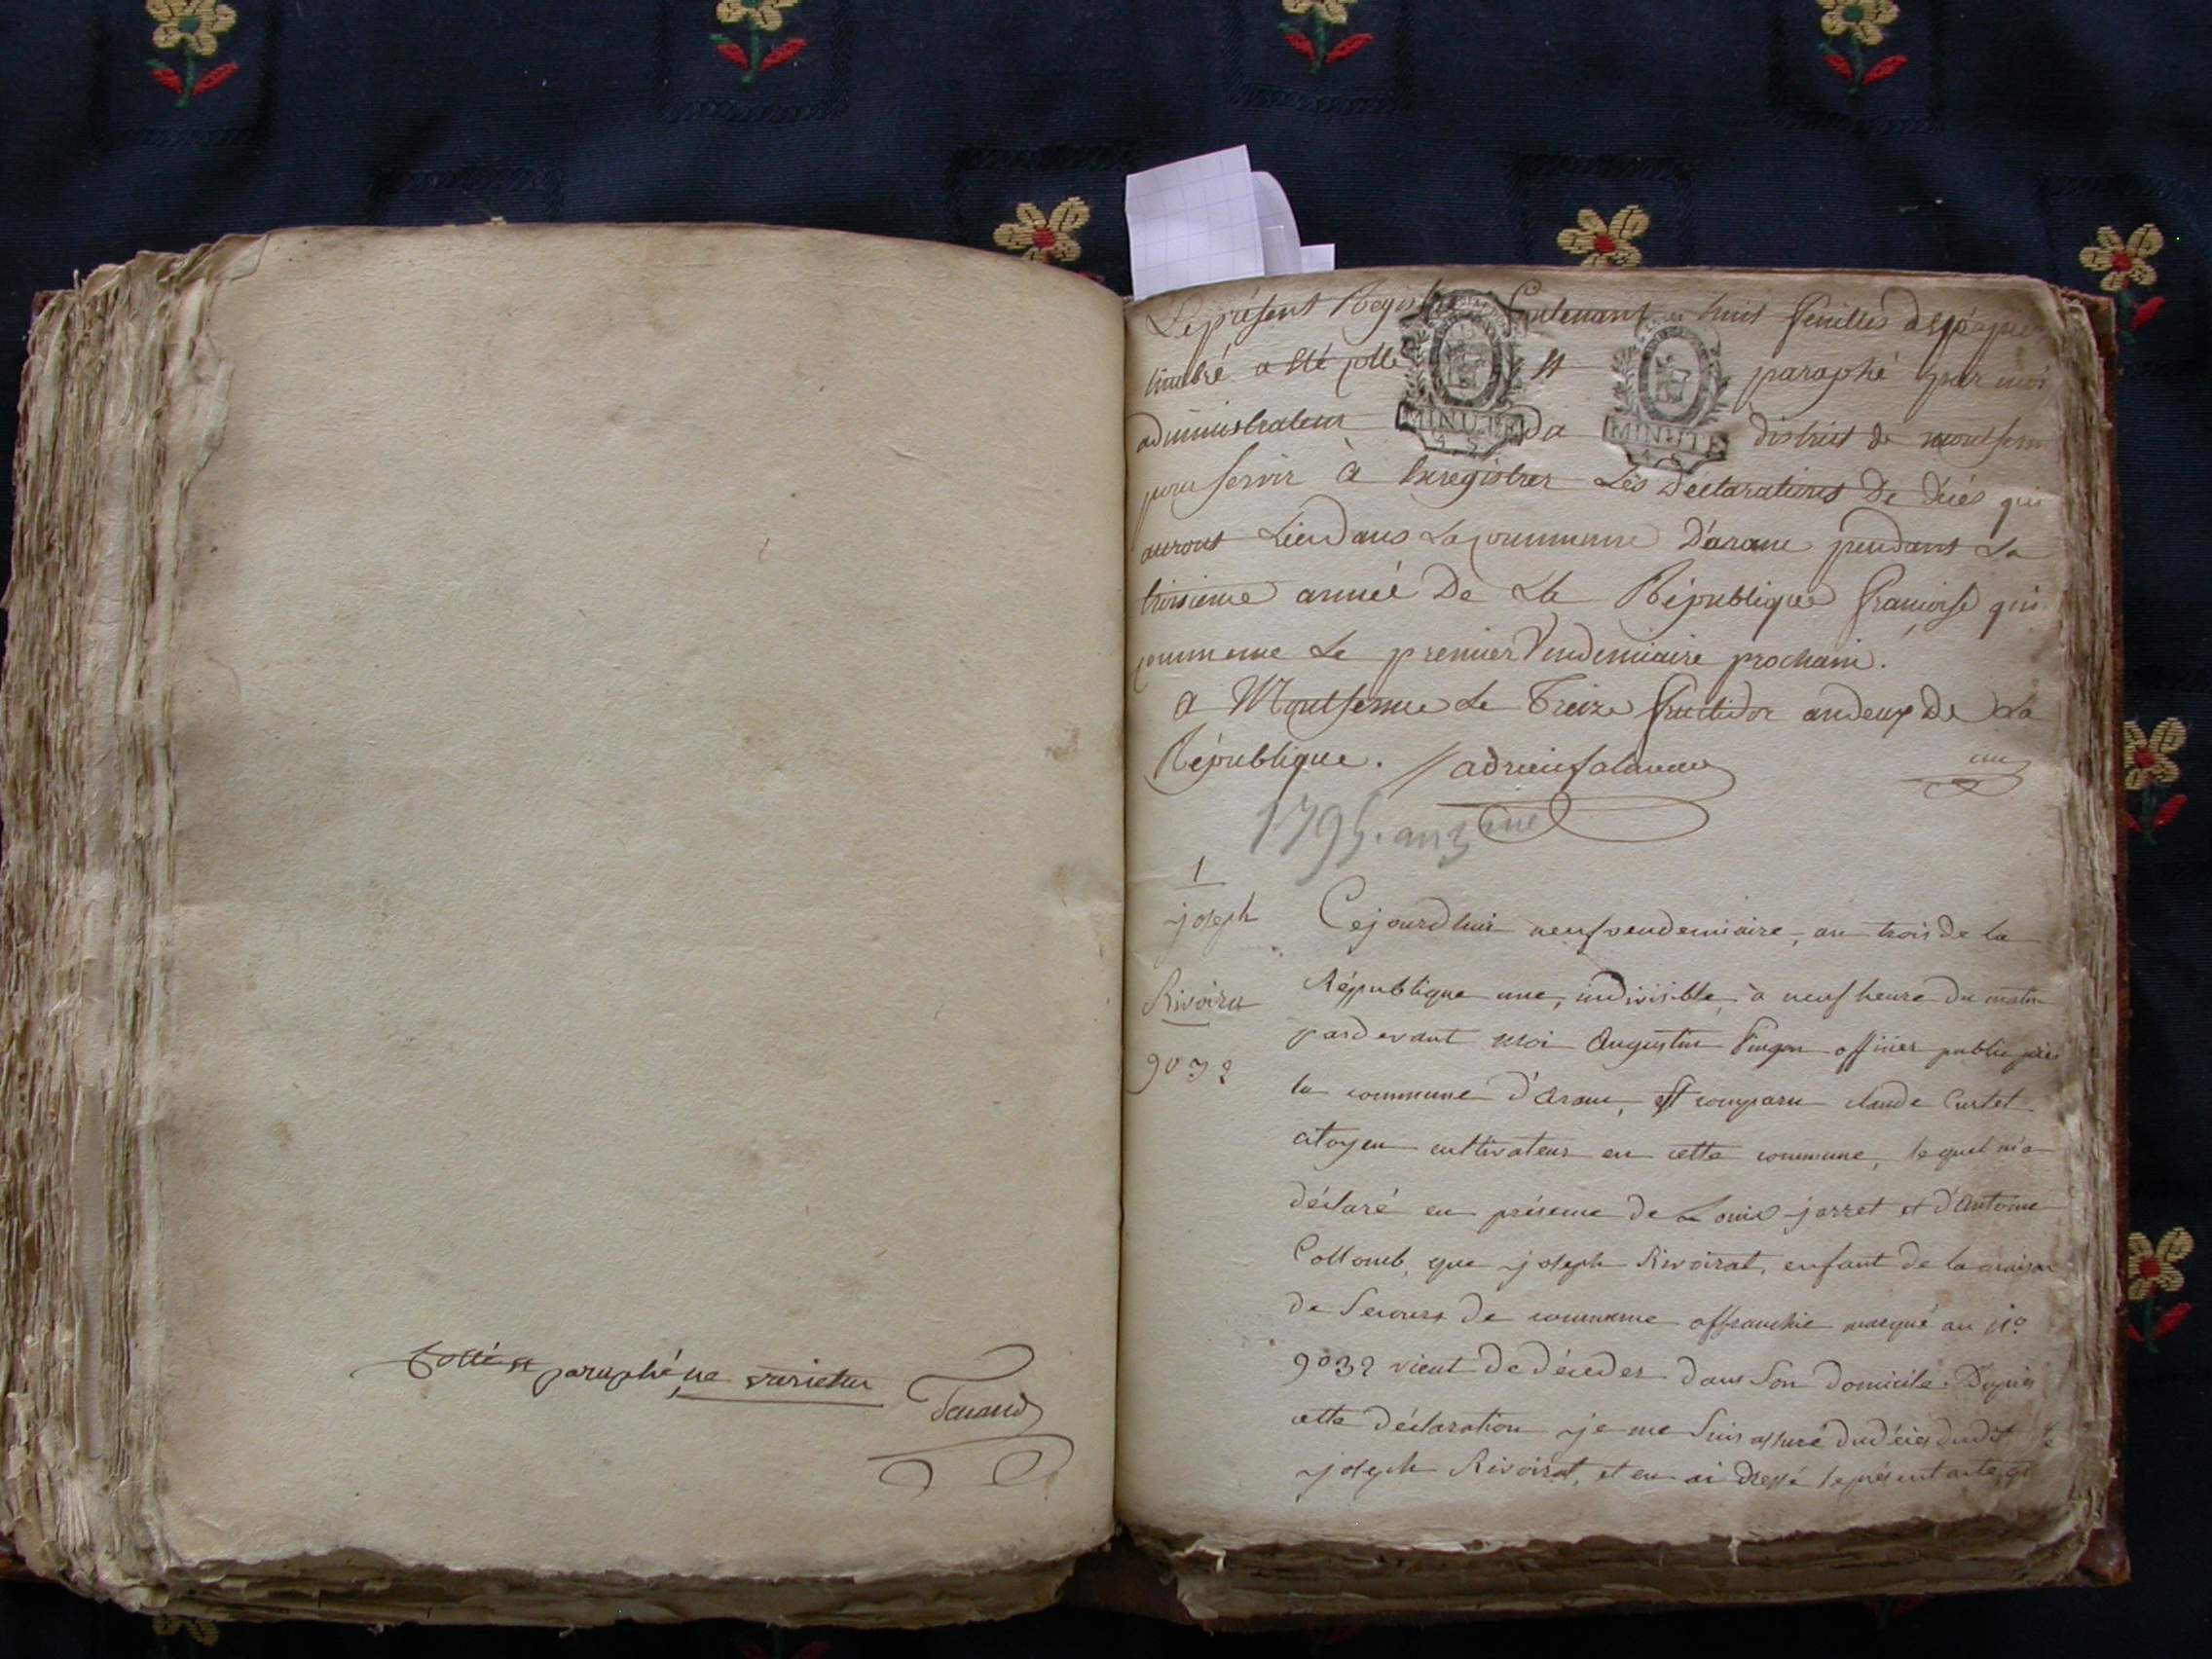 Cotté et paraphé, ne varietur
Le présent Registre Contenant huit feuilles de papier
timbré a été cotté et paraphé par moi
administrateur du district de montferm
MINUTE
MINUTE
pour servir à Enregistrer Les Déclarations De décès qui
auront Lieu dans La commune D'arane pendant La
troisieme année De La République françoise qui
commence Le premier Vendemiaire prochain.
a Montferme Le Treize fructidor an deux De La
République.
1795. an 3 eme
1
joseph
Rivoira
9032
Cejourdhui neuf vendemiaire, an trois de la
République une, indivisible, à neuf heure du matin
pardevant moi Augustin officier public près
la commune d'Arane, est comparu claude Curtet
citoyen cultivateur en cette commune, lequel m'a
déclaré en présence de Louis jarret et d'Antoine
Collomb, que joseph Rivoirat, enfant de la maison
de Secours de commune affranchie marqué au N.o
9032 vient de décéder dans Son domicile. D'après
cette déclaration je me Suis assuré du décès dudit
joseph Rivoirat, et en ai dressé le présent acte, qe